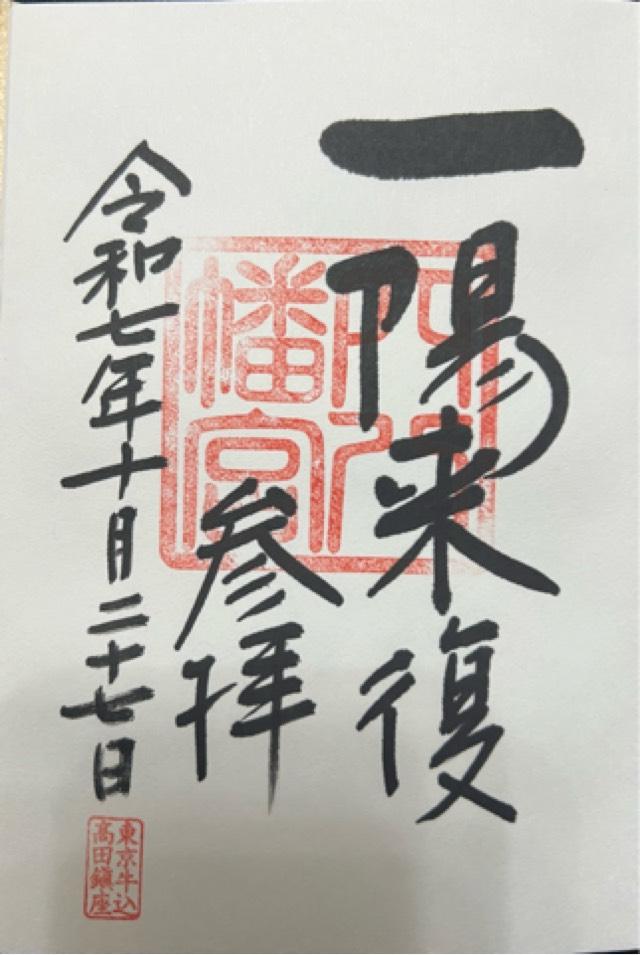 一陽来復
参拝
令和七年十月二十七日
八幡宮
東京牛込
高田鎮座